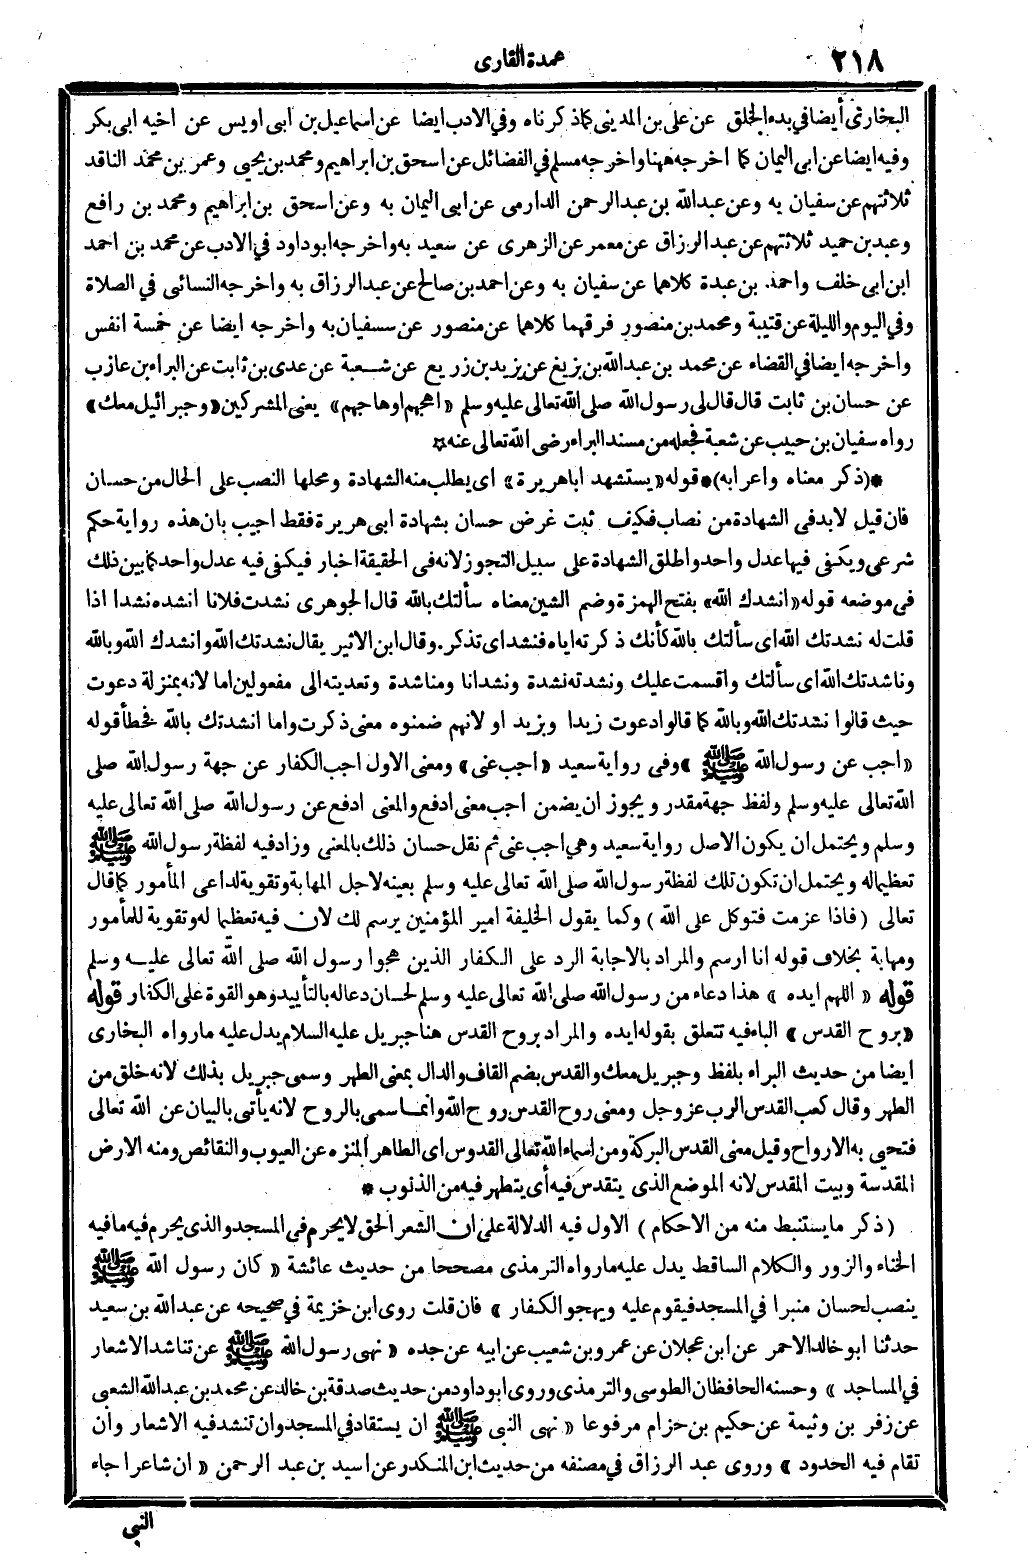 ٢١٨
عمدة القارى
البخارى أيضا فى بدء الخلق عن على بن المدينى كما ذكرناه وفى الادب ايضا عن اسماعيل بن أبى اويس عن اخيه ابى بكر
وفيه ايضا عن ابى اليمان كما اخرجه ههنا واخرجه مسلم فى الفضائل عن اسحق بن ابراهيم ومحمد بن يحيى وعمر بن محمد الناقد
ثلاثتهم عن سفيان به وعن عبد الله بن عبد الرحمن الدارمى عن ابى اليمان به وعن اسحق بن ابراهيم ومحمد بن رافع
وعبد بن حميد ثلاثتهم عن عبد الرزاق عن معمر عن الزهرى عن سعيد به واخرجه ابو داود فى الادب عن محمد بن احمد
ابن ابى خلف واحمد بن عبدة كلاهما عن سفيان به وعن احمد بن صالح عن عبد الرزاق به واخرجه النسائى فى الصلاة
وفى اليوم والليلة عن قتيبة ومحمد بن منصور فرقهما كلاهما عن منصور عن سفيان به واخرجه ايضا عن خمسة انفس
واخرجه ايضا فى القضاء عن محمد بن عبد الله بن بزيغ عن يزيد بن زريع عن شعبة عن عدى بن ثابت عن البراء بن عازب
عن حسان بن ثابت قال قال لى رسول الله صلى الله تعالى عليه وسلم «اهجهم او هاجهم» يعنى المشركين «وجبرائيل معك»
رواه سفيان بن حبيب عن شعبة فجعله من مسند البراء رضى الله تعالى عنه *
*(ذكر معناه واعرابه)* قوله «يستشهد اباهريرة» اى يطلب منه الشهادة ومحلها النصب على الحال من حسان
فان قيل لا بد فى الشهادة من نصاب فكيف ثبت غرض حسان بشهادة ابى هريرة فقط اجيب بان هذه رواية حكم
شرعى ويكفى فيها عدل واحد واطلق الشهادة على سبيل التجوز لانه فى الحقيقة اخبار فيكفى فيه عدل واحد كما بين ذلك
فى موضعه قوله «انشدك الله» بفتح الهمزة وضم الشين معناه سألتك بالله قال الجوهرى نشدت فلانا انشده نشدا اذا
قلت له نشدتك الله اى سألتك بالله كأنك ذكرته اياه فنشد اى تذكر. وقال ابن الاثير يقال نشدتك الله وانشدك الله وبالله
وناشدتك الله اى سألتك واقسمت عليك ونشدته نشدة ونشدانا ومناشدة وتعديته الى مفعولين اما لانه بمنزلة دعوت
حيث قالوا نشدتك الله وبالله كما قالوا دعوت زيدا وبزيد او لانهم ضمنوه معنى ذكرت واما انشدتك بالله فخطأ قوله
«اجب عن رسول الله ﷺ» وفى رواية سعيد «اجب عنى» ومعنى الاول اجب الكفار عن جهة رسول الله صلى
الله تعالى عليه وسلم ولفظ جهة مقدر ويجوز ان يضمن اجب معنى ادفع والمعنى ادفع عن رسول الله صلى الله تعالى عليه
وسلم ويحتمل ان يكون الاصل رواية سعيد وهى اجب عنى ثم نقل حسان ذلك بالمعنى وزاد فيه لفظة رسول الله ﷺ
تعظيما له ويحتمل ان تكون تلك لفظة رسول الله صلى الله تعالى عليه وسلم بعينه لاجل المهابة وتقوية لداعى المأمور كما قال
تعالى (فاذا عزمت فتوكل على الله) وكما يقول الخليفة امير المؤمنين يرسم لك لان فيه تعظيما له وتقوية للمأمور
ومهابة بخلاف قوله انا ارسم والمراد بالاجابة الرد على الكفار الذين هجوا رسول الله صلى الله تعالى عليه وسلم
قوله «اللهم ايده» هذا دعاء من رسول الله صلى الله تعالى عليه وسلم لحسان دعا له بالتأييد وهو القوة على الكفار قوله
«بروح القدس» الباء فيه تتعلق بقوله ايده والمراد بروح القدس هنا جبريل عليه السلام يدل عليه ما رواه البخارى
ايضا من حديث البراء بلفظ وجبريل معك والقدس بضم القاف والدال بمعنى الطهر وسمى جبريل بذلك لانه خلق من
الطهر وقال كعب القدس الرب عز وجل ومعنى روح القدس روح الله وانما سمى بالروح لانه يأتى بالبيان عن الله تعالى
فتحيى به الارواح وقيل معنى القدس البركة ومن اسماء الله تعالى القدوس اى الطاهر المنزه عن العيوب والنقائص ومنه الارض
المقدسة وبيت المقدس لانه الموضع الذى يتقدس فيه أى يتطهر فيه من الذنوب *
(ذكر ما يستنبط منه من الاحكام) الاول فيه الدلالة على ان الشعر الحق لا يحرم فى المسجد والذى يحرم فيه ما فيه
الخناء والزور والكلام الساقط يدل عليه ما رواه الترمذى مصححا من حديث عائشة «كان رسول الله ﷺ
ينصب لحسان منبرا فى المسجد فيقوم عليه ويهجو الكفار» فان قلت روى ابن خزيمة فى صحيحه عن عبد الله بن سعيد
حدثنا ابو خالد الاحمر عن ابن عجلان عن عمرو بن شعيب عن ابيه عن جده «نهى رسول الله ﷺ عن تناشد الاشعار
فى المساجد» وحسنه الحافظان الطوسى والترمذى وروى ابو داود من حديث صدقة بن خالد عن محمد بن عبد الله الشعبى
عن زفر بن وثيمة عن حكيم بن حزام مرفوعا «نهى النبى ﷺ ان يستقاد فى المسجد وان تنشد فيه الاشعار وأن
تقام فيه الحدود» وروى عبد الرزاق فى مصنفه من حديث ابن المنكدر عن اسيد بن عبد الرحمن «ان شاعرا جاء
النبى